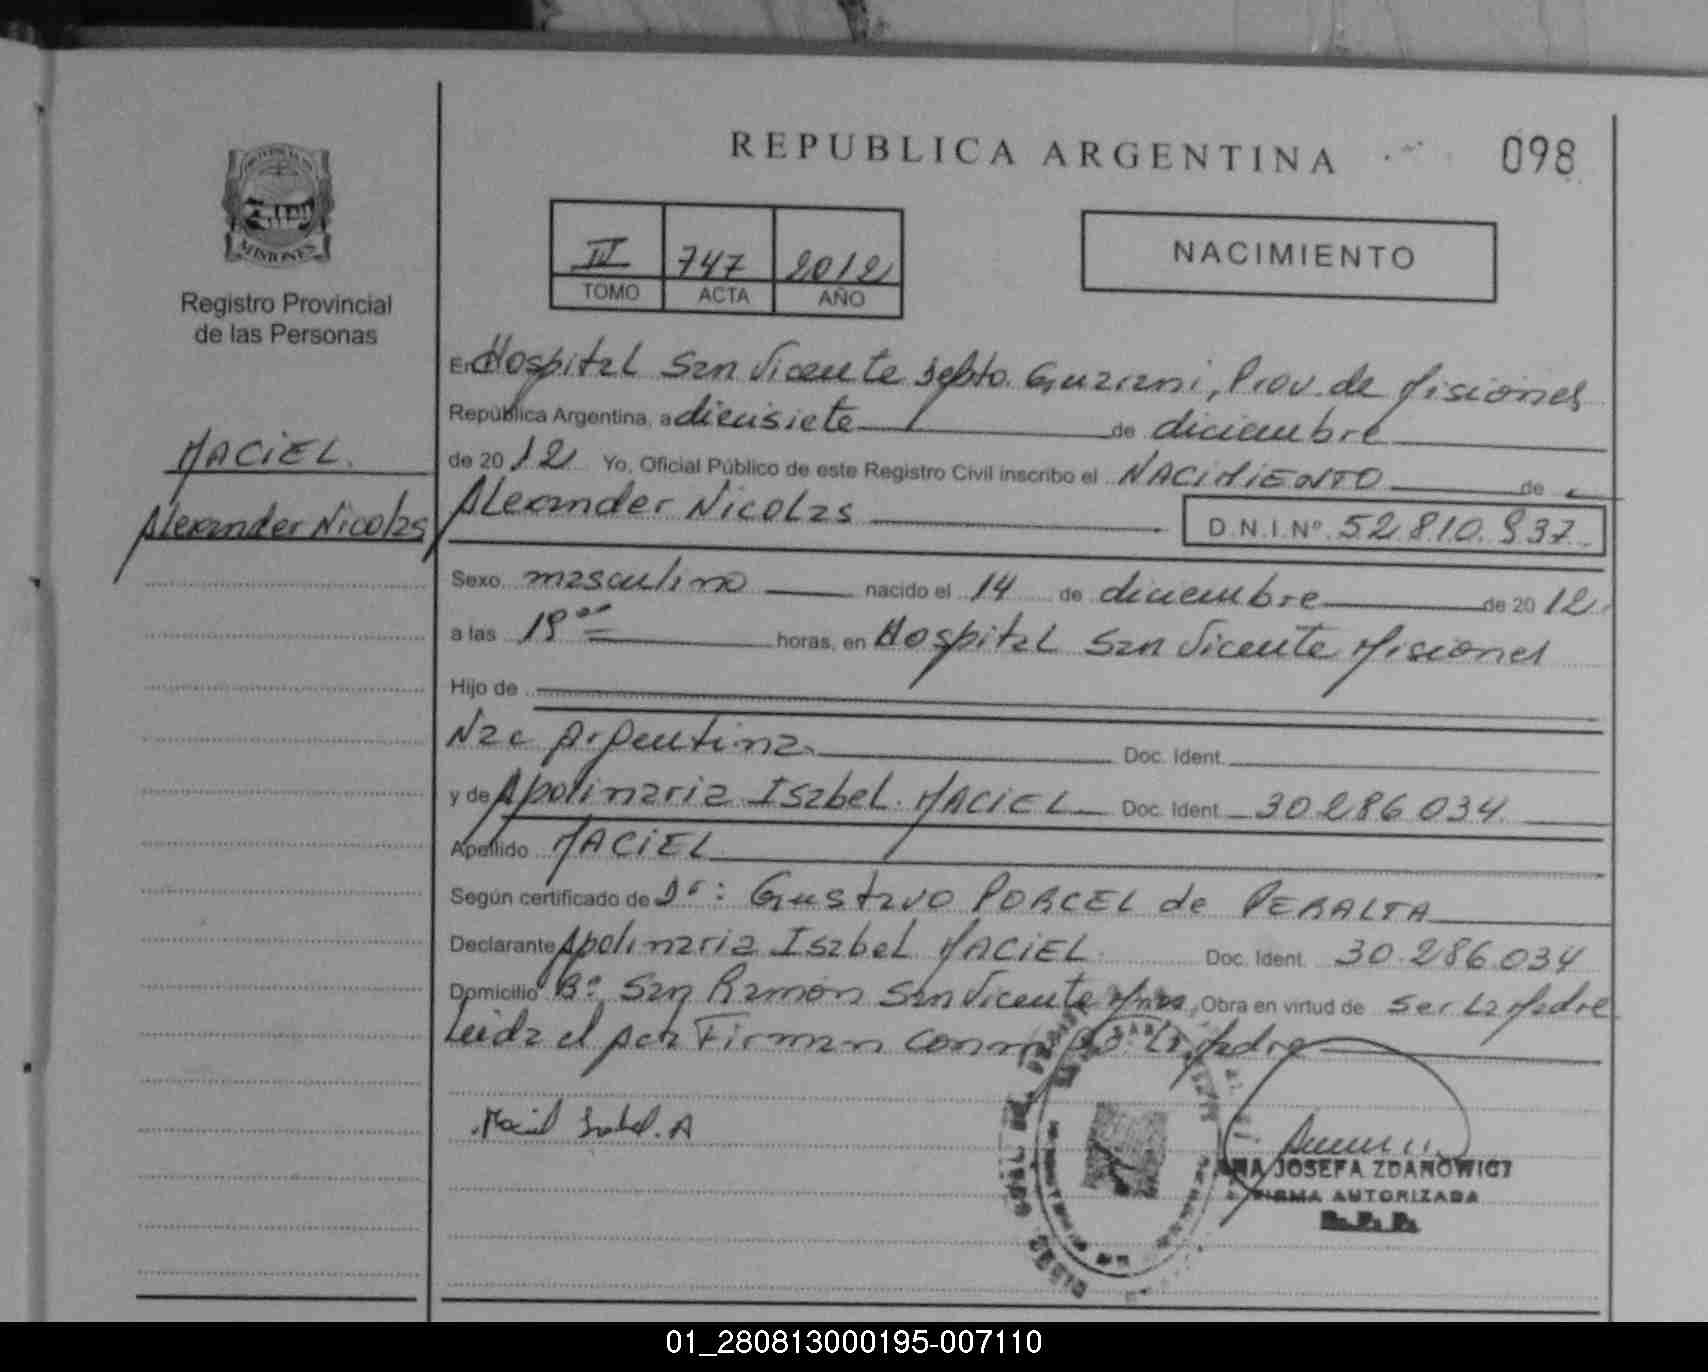 REPUBLICA ARGENTINA
098
PROVINCIA DE
MISIONES
Registro Provincial
de las Personas
747 2012
TOMO ACTA AÑO
NACIMIENTO
En Hospital San Vicente Depto. Guarani, Prov. de Misiones
República Argentina, a diecisiete de diciembre
MACIEL.
de 20 12 Yo, Oficial Público de este Registro Civil inscribo el NACIMIENTO de
Alexander Nicolas
Alexander Nicolas D.N.I.Nº 52.810.937
Sexo masculino nacido el 14 de diciembre de 20 12
a las horas, en Hospital San Vicente Misiones
Hijo de
Nac Argentina. Doc. Ident.
y de Apolinaria Isabel. MACIEL Doc. Ident. 30.286.034
Apellido MACIEL
Según certificado de Dr: Gustavo PORCEL de PERALTA
Declarante Apolinaria Isabel MACIEL Doc. Ident. 30.286.034
Domicilio Bº San Ramon San Vicente Mnes, Obra en virtud de ser La Madre
Leida el acta Firman conmigo. La Madre
Maciel Isabel. A
ANA JOSEFA ZDANOWICZ
FIRMA AUTORIZADA
R. P. P.
01_280813000195-007110